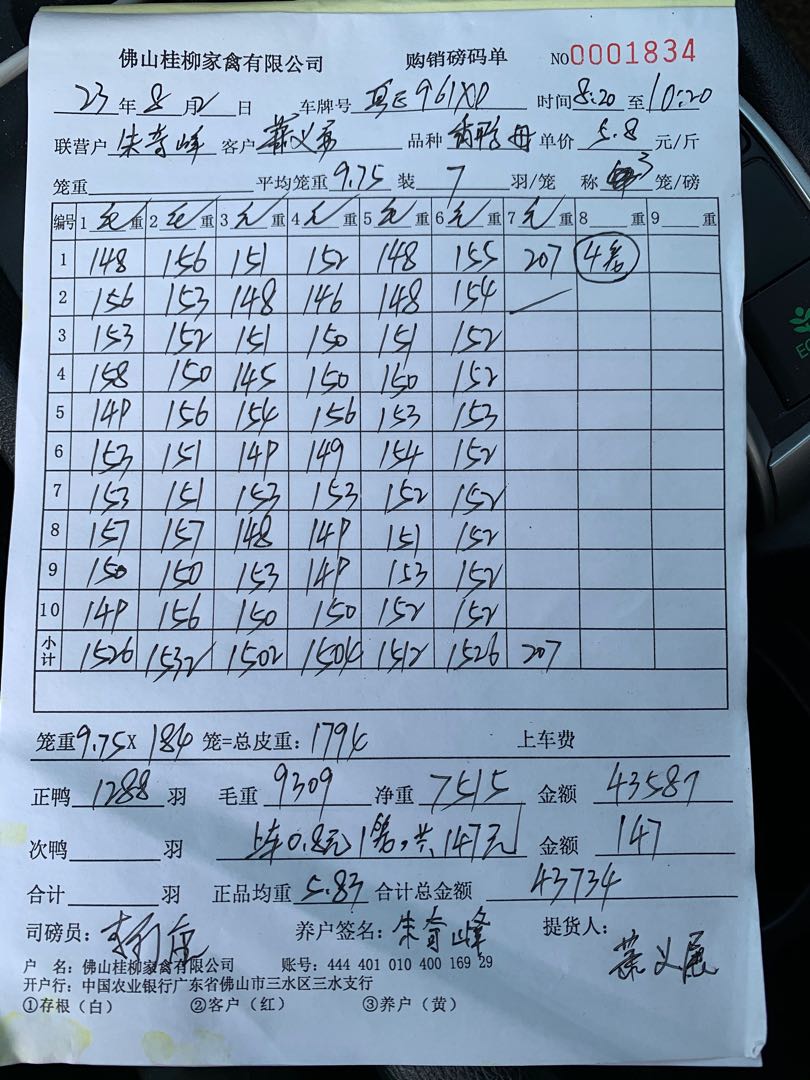 佛山桂柳家禽有限公司 购销磅码单 NO0001834
23年8月2日 车牌号 961XP 时间8:20至10:20
联营户 朱奇峰 客户 品种 单价 5.8 元/斤
笼重 平均笼重9.75 装 7 羽/笼 称 3 笼/磅
编号 1毛重 2毛重 3毛重 4毛重 5毛重 6毛重 7毛重 8 重 9 重
1 148 156 151 152 148 155 207 4笼
2 156 153 148 146 148 154
3 153 152 151 150 151 152
4 158 150 145 150 150 152
5 149 156 154 156 153 153
6 153 151 149 149 154 152
7 153 151 153 153 152 152
8 157 157 148 149 151 152
9 150 150 153 149 153 152
10 149 156 150 150 152 152
小计 1526 1532 1502 1504 1512 1526 207
笼重9.75X 184 笼=总皮重：1794 上车费
正鸭 1288 羽 毛重 9309 净重 7515 金额 43587
次鸭 羽 上车0.8元1笼,共147元 金额 147
合计 羽 正品均重 5.83 合计总金额 43734
司磅员： 养户签名：朱奇峰 提货人：
户 名：佛山桂柳家禽有限公司 账号：444 401 010 400 169 29
开户行：中国农业银行广东省佛山市三水区三水支行
①存根（白） ②客户（红） ③养户（黄）